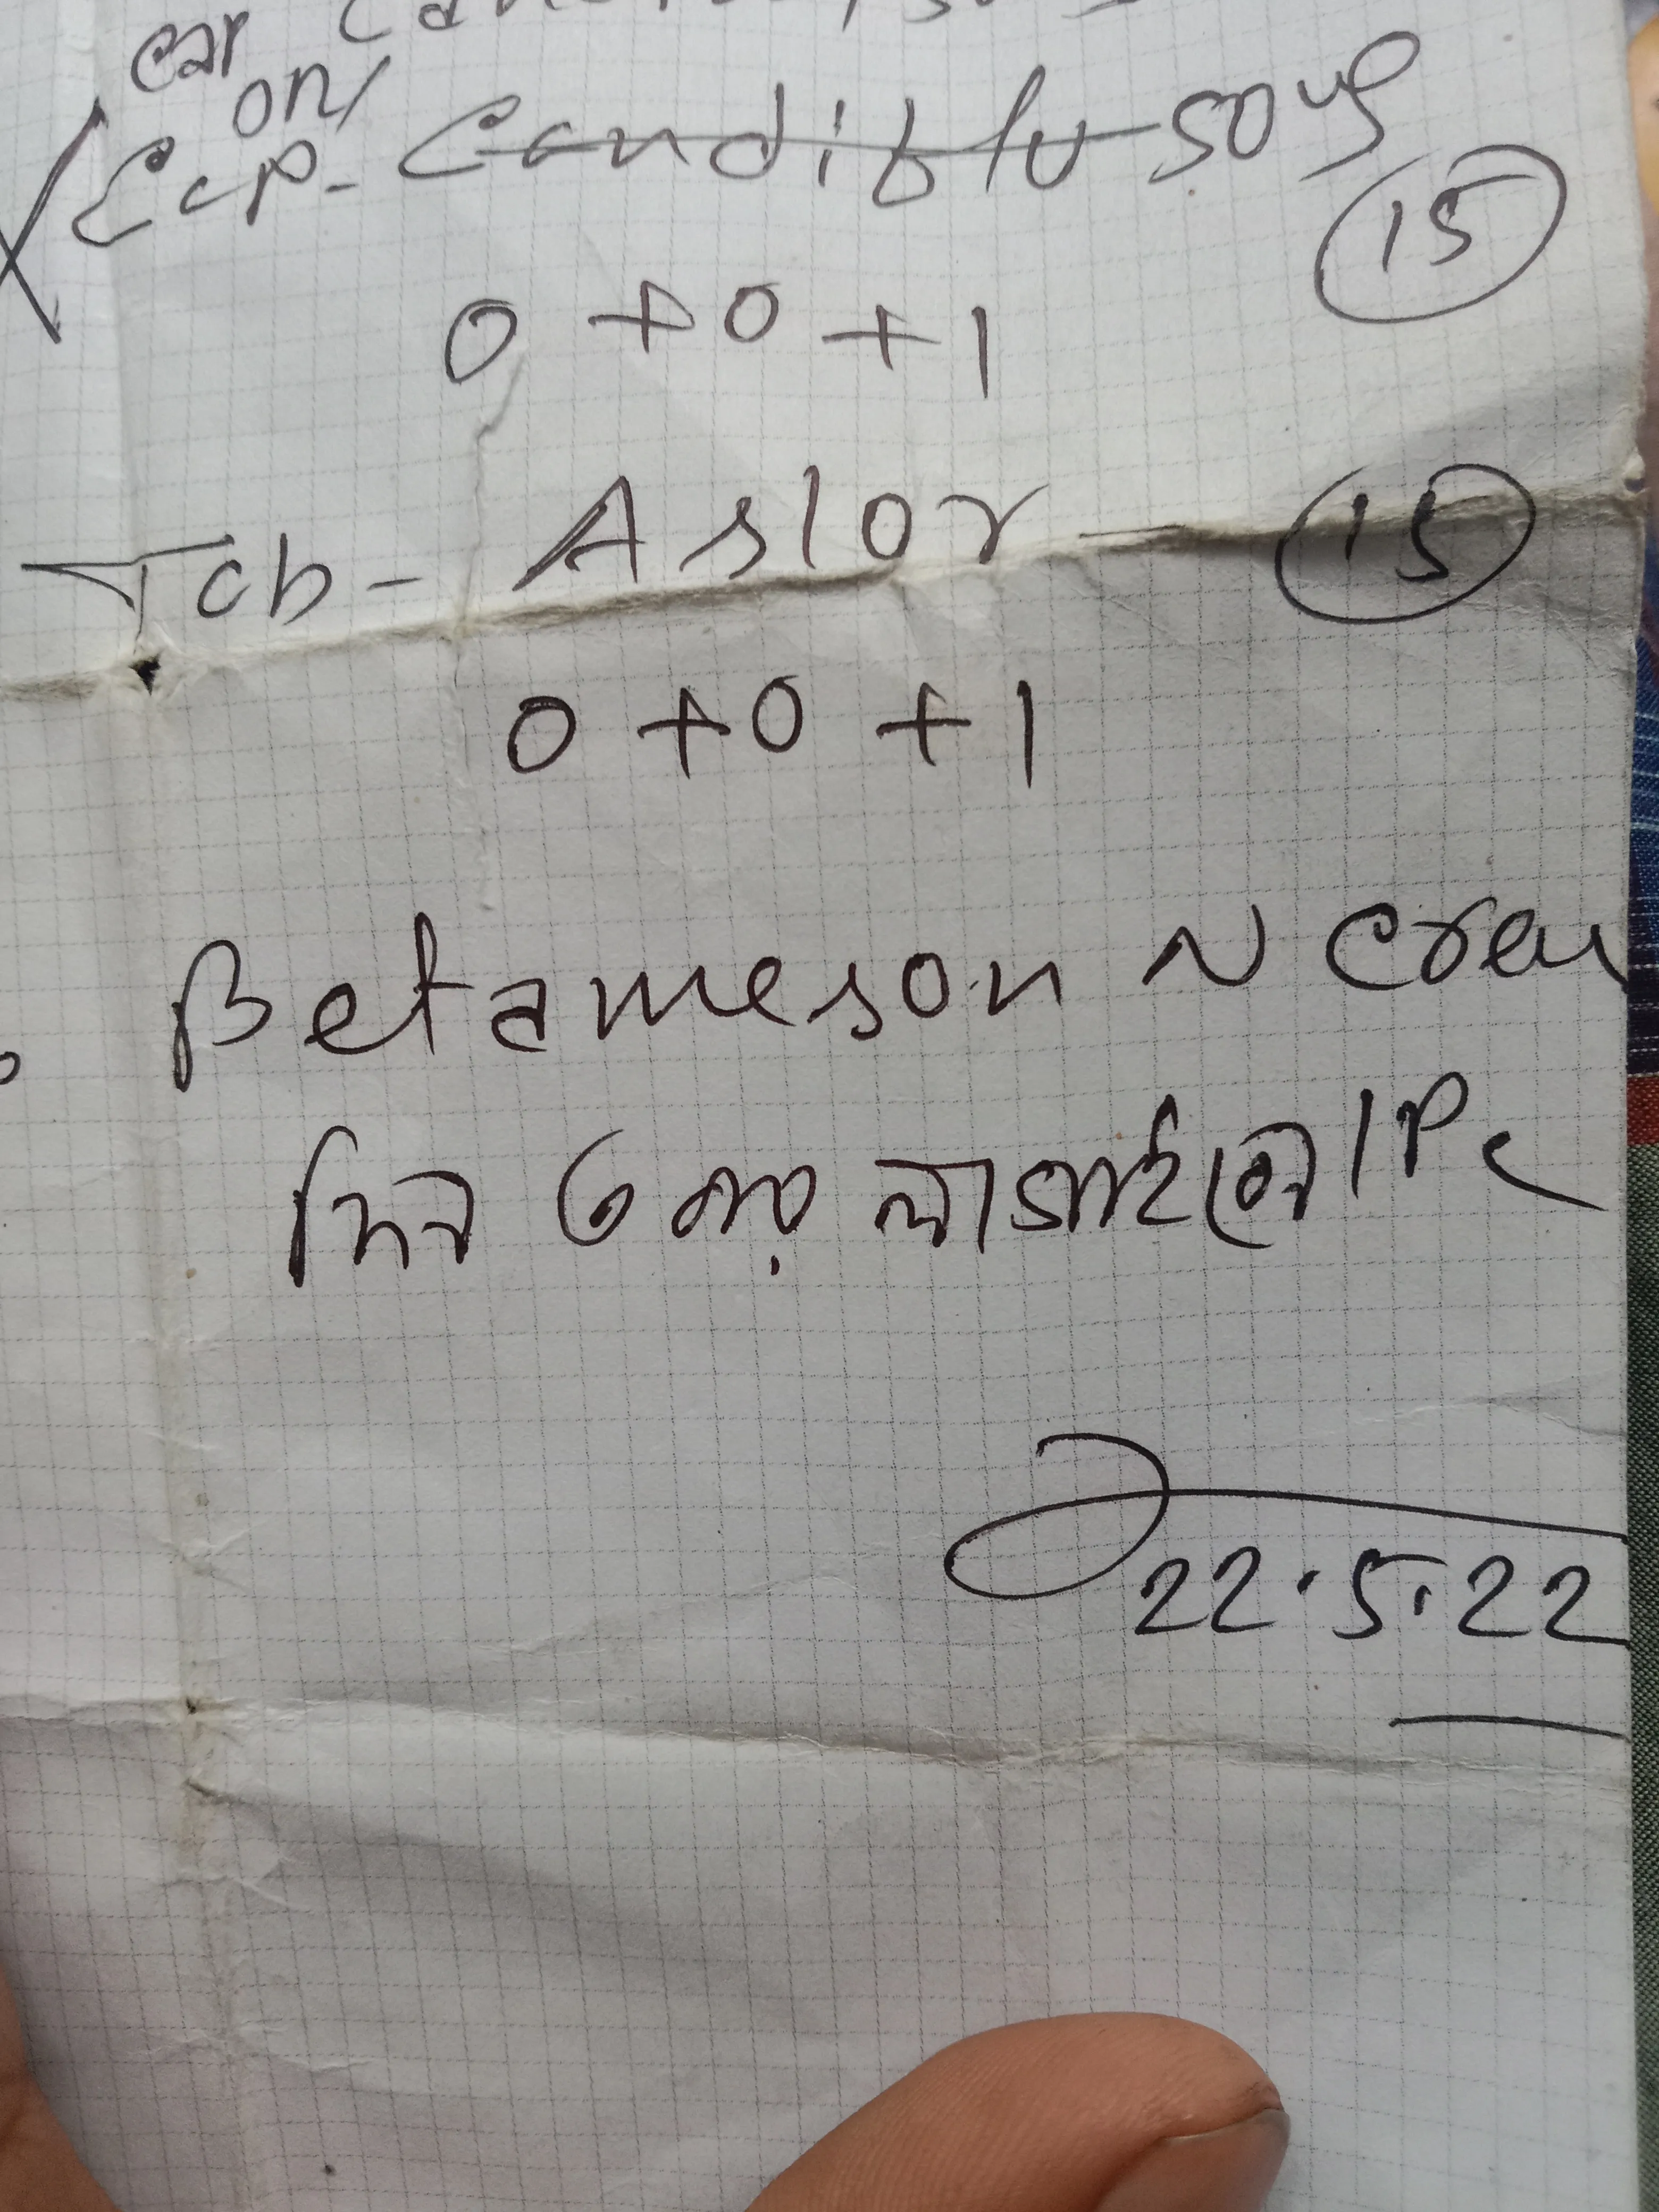 Cap- Candiflu 50mg
15
0+0+1
Tab- Aslor - 15
0+0+1
Betameson N Crea
দিন ৩ বার লাগাইবেন 1Pc
22.5.22